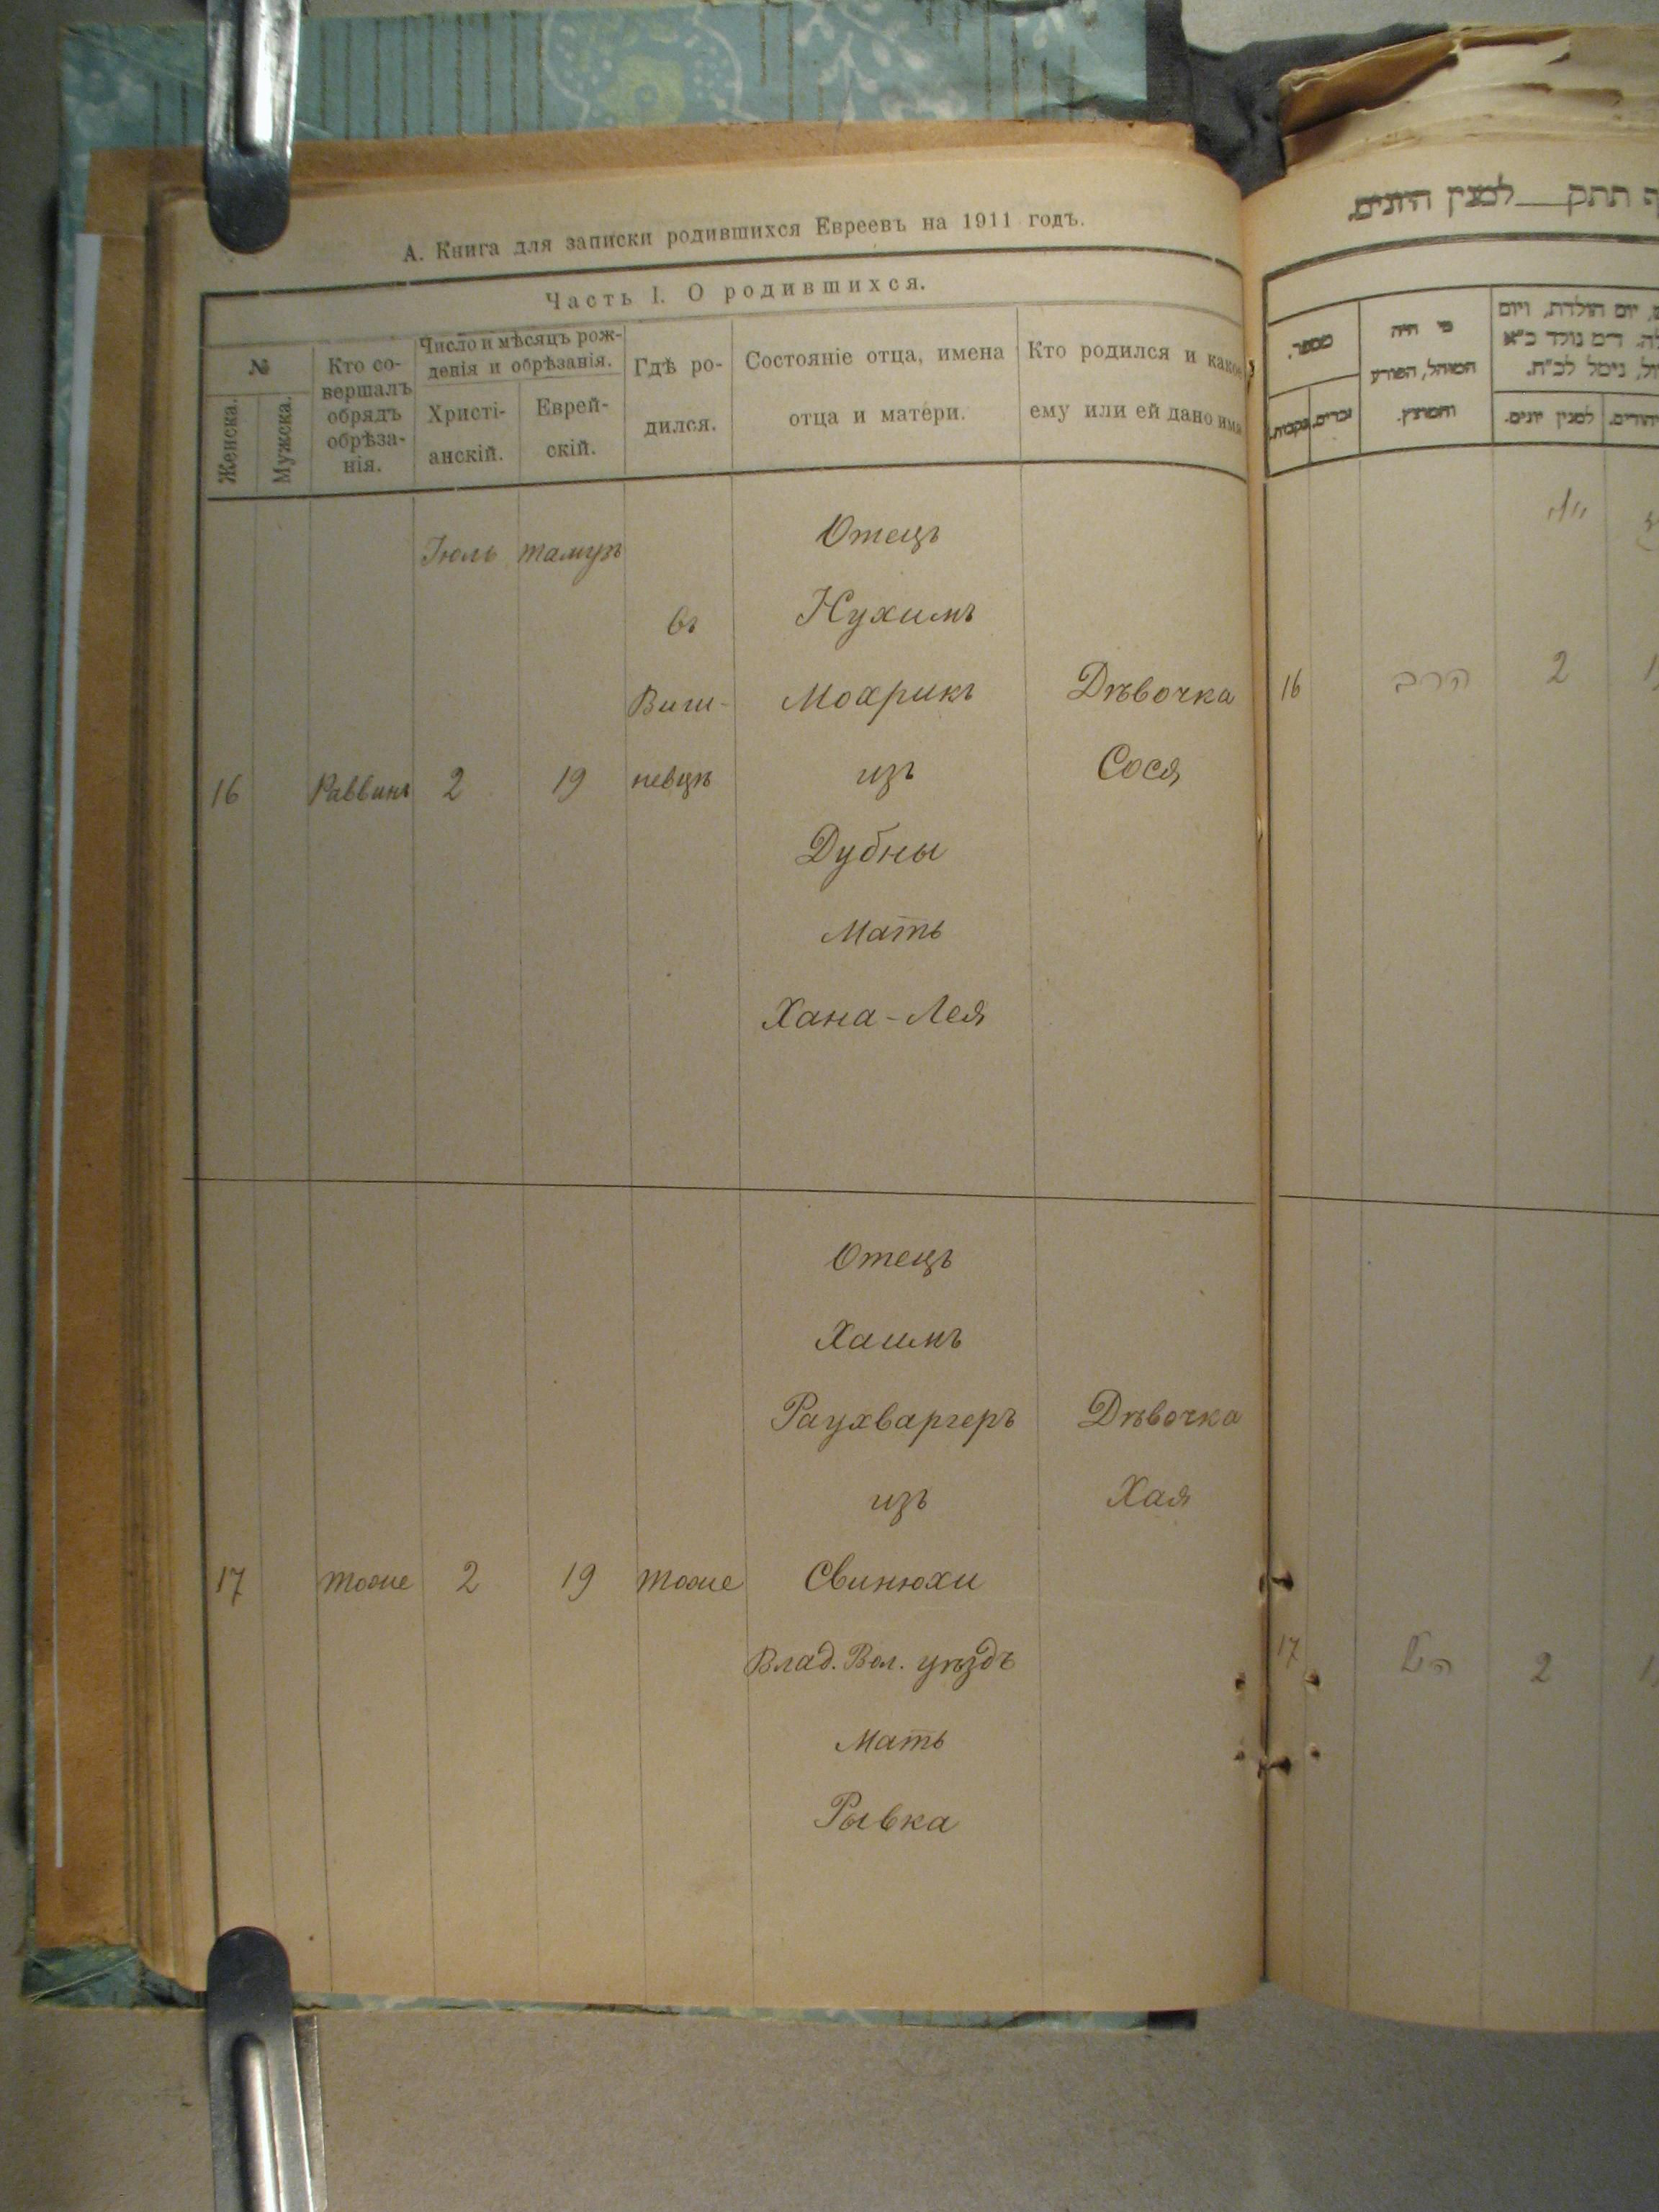 А. Книга для записки родившихся Евреевъ на 1911 годъ.
Часть I. О родившихся.
№
Женска.
Мужска.
Кто со-
вершалъ
обрядъ
обрѣза-
нія.
Число и мѣсяцъ рож-
денія и обрѣзанія.
Христі-
анскій.
Еврей-
скій.
Гдѣ ро-
дился.
Состояніе отца, имена
отца и матери.
Кто родился и какое
ему или ей дано имя
Іюль тамузъ
16 Раввинъ 2 19
въ
Виш-
невцѣ
Отецъ
Нухимъ
Мохрикъ
изъ
Дубны
Мать
Хана-Лея
Дѣвочка
Сося
17 тоже 2 19 тоже
Отецъ
Хаимъ
Раухваргеръ
изъ
Свинюхи
Влад. Вол. уѣздъ
Мать
Рывка
Дѣвочка
Хая
תתק למנין היונים.
מספר.
נקבות.
זכרים.
מי היה
המוהל, הפורע
והמוצץ.
יום הולדת, ויום
נולד כ"א
נימל לכ"ח.
למנין יונים.
16 הרב 2
17 2